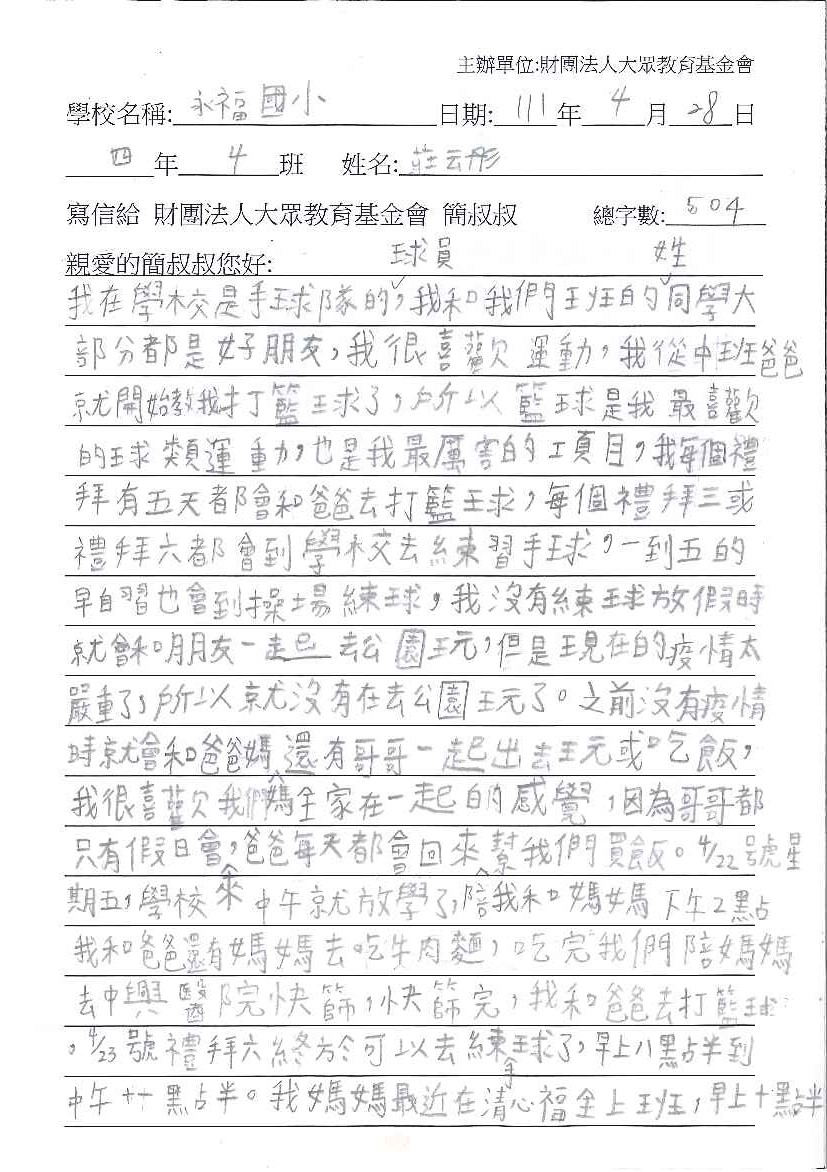 主辦單位:財團法人大眾教育基金會
學校名稱: 永福國小 日期: 111 年 4 月 28 日
四 年 4 班 姓名: 莊云彤
寫信給 財團法人大眾教育基金會 簡叔叔 總字數: 504
親愛的簡叔叔您好: 球員 姓
我在學校是手球隊的,我和我們班的同學大
部分都是好朋友,我很喜歡運動,我從中班爸爸
就開始教我打籃球了,所以籃球是我最喜歡
的球類運動,也是我最厲害的項目,我每個禮
拜有五天都會和爸爸去打籃球,每個禮拜三或
禮拜六都會到學校去練習手球,一到五的
早自習也會到操場練球,我沒有練球放假時
就會和朋友一起去公園玩,但是現在的疫情太
嚴重了,所以就沒有在去公園玩了。之前沒有疫情
時就會和爸爸媽還有哥哥一起出去玩或吃飯,
媽
我很喜歡我們全家在一起的感覺,因為哥哥都
只有假日會,爸爸每天都會回來幫我們買飯。4/22號星
來
期五,學校中午就放學了,陪我和媽媽下午2點
我和爸爸還有媽媽去吃牛肉麵,吃完我們陪媽媽
去中興醫院快篩,快篩完,我和爸爸去打籃球
,4/23號禮拜六終於可以去練球了,早上八點半到
手
中午十一點半。我媽媽最近在清心福全上班,早上十點半